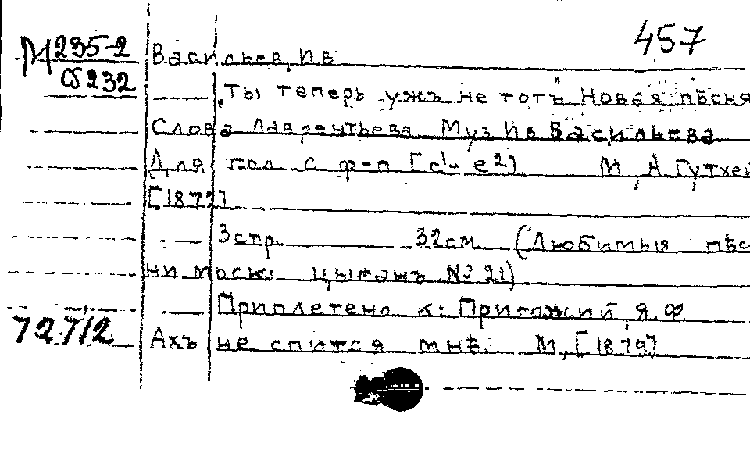 457
М 235-2 Васильев, Ив
CS 232
„Ты теперь ужъ не тотъ" Новая пѣсня
Слова Лаврентьева Муз Ив Васильева
Для гол с ф-п [c¹-e²] М, А Гутхей
[1872]
3 стр 32 см (Любимыя пѣс
ни моск. цыганъ № 21)
Приплетено к: Пригожий, Я. Ф
72712 Ахъ не спится мнѣ. М, [1879]